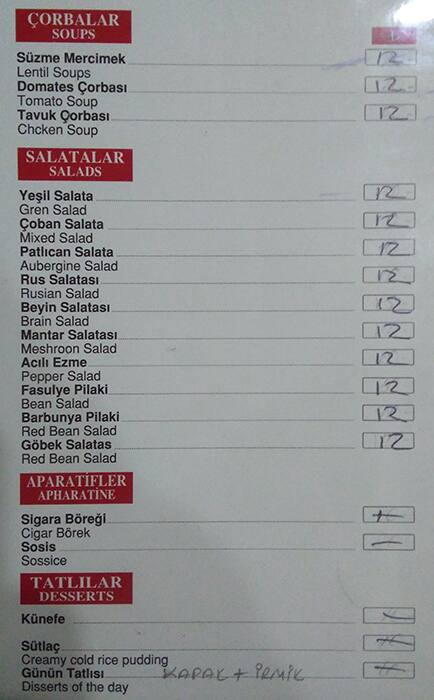 ÇORBALAR
SOUPS
Süzme Mercimek 12
Lentil Soups
Domates Çorbası 12
Tomato Soup
Tavuk Çorbası 12
Chcken Soup
SALATALAR
SALADS
Yeşil Salata 12
Gren Salad
Çoban Salata 12
Mixed Salad
Patlıcan Salata 12
Aubergine Salad
Rus Salatası 12
Rusian Salad
Beyin Salatası 12
Brain Salad
Mantar Salatası 12
Meshroon Salad
Acılı Ezme 12
Pepper Salad
Fasulye Pilaki 12
Bean Salad
Barbunya Pilaki 12
Red Bean Salad
Göbek Salatas 12
Red Bean Salad
APARATİFLER
APHARATINE
Sigara Böreği
Cigar Börek
Sosis
Sossice
TATLILAR
DESSERTS
Künefe
Sütlaç
Creamy cold rice pudding
Günün Tatlısı KAPAK + İRMİK
Disserts of the day